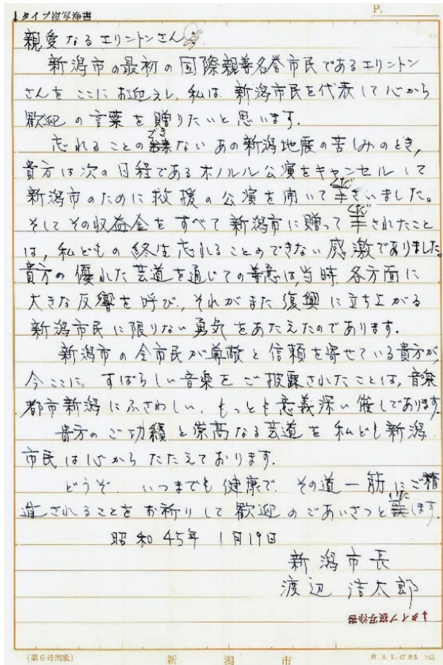 ↓タイプ複写浄書
P.
親愛なるエリントンさん
新潟市の最初の国際親善名誉市民であるエリントン
さんをここにお迎えし、私は、新潟市民を代表して心から
歓迎の言葉を贈りたいと思います。
忘れることのできない あの新潟地震の苦しみのとき、
貴方は次の日程であるホノルル公演をキャンセルして
新潟市のために救援の公演を開いてくださいました。
そしてその収益金をすべて新潟市に贈ってくだされたこと
は、私どもの終生忘れることのできない感激でありました。
貴方の優れた芸道を通じての善意は、当時、各方面に
大きな反響を呼び、それがまた復興に立ち上がる
新潟市民に限りない勇気をあたえたのであります。
新潟市の全市民が尊敬と信頼を寄せている貴方が、
今ここに、すばらしい音楽をご披露されたことは、音楽
都市新潟にふさわしい、もっとも意義深い催しであります。
貴方のご功績と崇高なる芸道を私ども新潟
市民は心からたたえております。
どうぞ、いつまでも健康で、その道一筋にご精
進されることをお祈りして歓迎のごあいさつと致します。
昭和45年 1月19日
新潟市長
渡辺 浩太郎
↓タイプ複写浄書
(第6号用紙) 新潟市